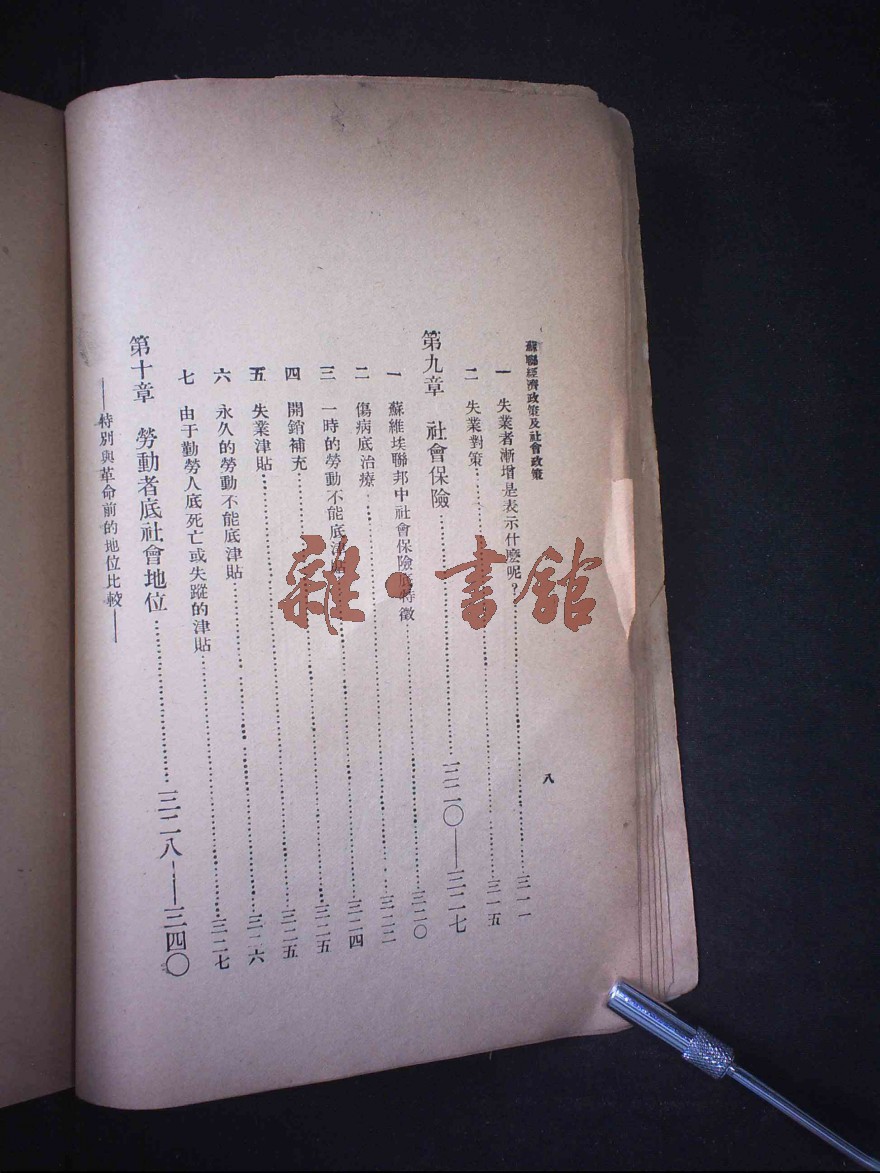 蘇聯經濟政策及社會政策 八
一 失業者漸增是表示什麽呢?……三一一
二 失業對策……三一五
第九章 社會保險……三二〇——三二七
一 蘇維埃聯邦中社會保險底特徵……三二〇
二 傷病底治療……三二二
三 一時的勞動不能底津貼……三二四
四 開銷補充……三二五
五 失業津貼……三二五
六 永久的勞動不能底津貼……三二六
七 由于勤勞人底死亡或失蹤的津貼……三二七
第十章 勞動者底社會地位……三二八——三四〇
——特別與革命前的地位比較——
雜·書館